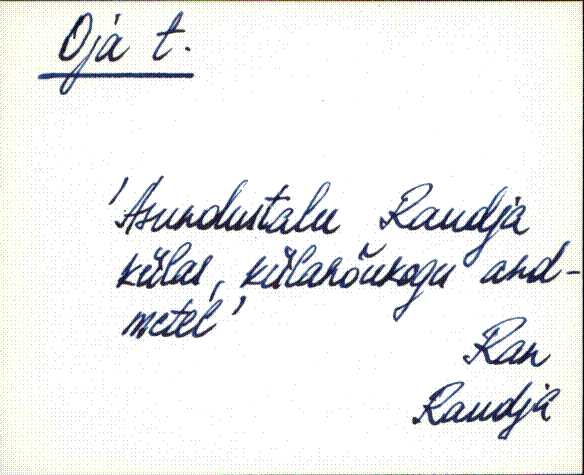 Oja t.
'Asundustalu Raudja
külas, külanõukogu and-
metel'
Ran
Raudja